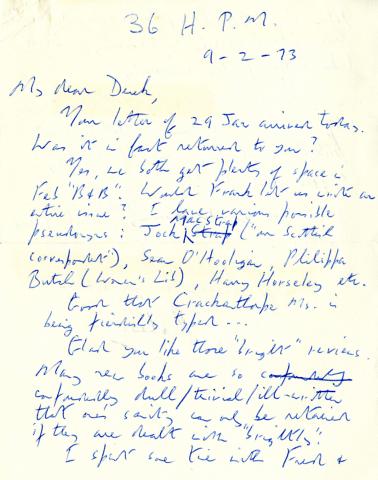 36 H. P. M.
9-2-73
My dear Derek,
Your letter of 29 Jan arrived today.
Was it in fact returned to you?
Yes, we both got plenty of space in
Feb "B&B". Would Frank let us write an
entire issue? I have various possible
pseudonyms: Jock MacStrap (our Scottish
correspondent), Sean O'Hooligan, Philippa
Butch (Women's Lib), Harry Horseley etc.
Good that Crackanthorpe Ms. is
being fiendishly typed...
Glad you like those "bright" reviews.
Many new books are so
confoundedly dull/trivial/ill-written
that one's sanity can only be retained
if they are dealt with "brightly".
I spent some time with Frank &